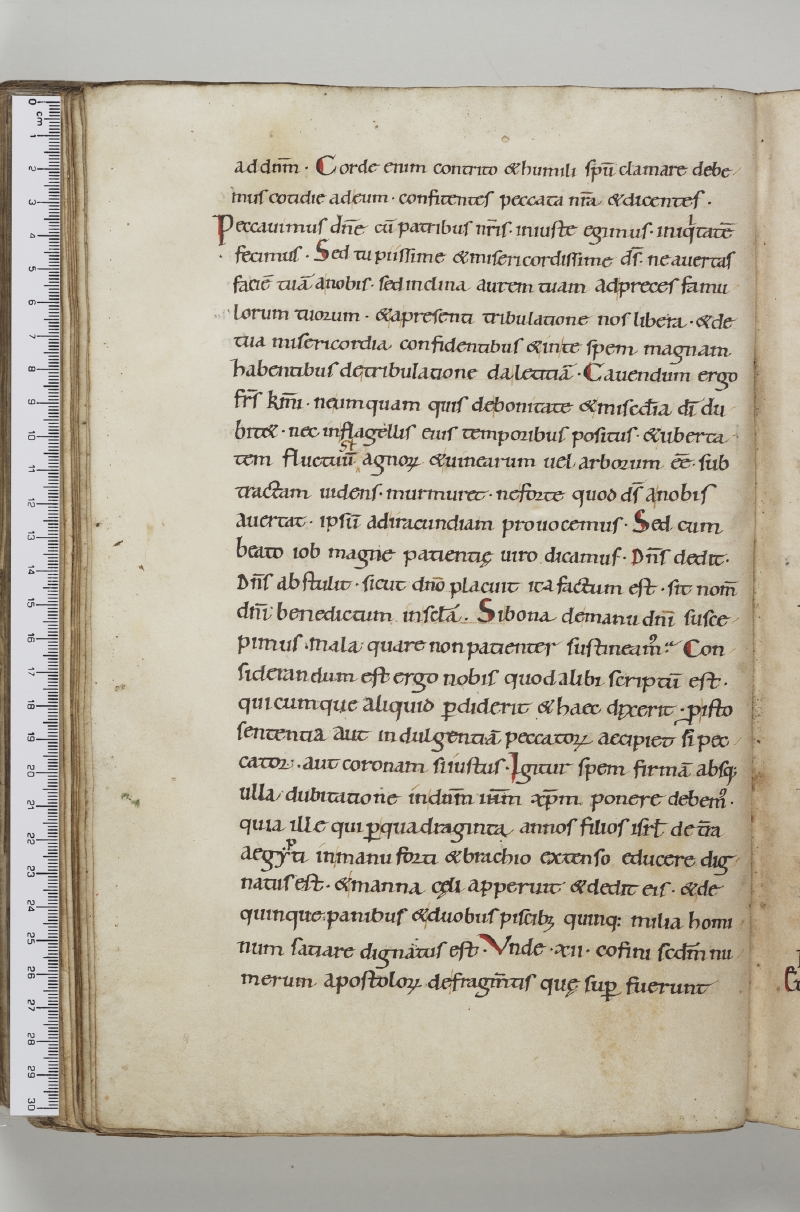 addn̄m · Corde enim contrito &humili sp̄u clamare debe
mus cotidie adeum · confitentes peccata nr̄a &dicentes ·
Peccauimus dn̄e cū patribus nr̄is · iniuste egimus · iniqͥtatē
fecimus · Sed tu piissime &misericordissime dS̄ · ne auertas
faciē tuā anobis · sed inclina aurem tuam adpreces famu
lorum tuorum · &apresenti tribulatione nos libera · &de
tua misericordia confidentibus &inte spem magnam
habentibus detribulatione da letitiā · Cauendum ergo
fr̄s km̄i · neumquam quis debonitate &misc̄dia dī du
bit& · nec inflagellis eius temporibus positus · &uberta
tem fluctuū st̄ agroꝝ &uinearum uel arborum ēē · sub
tractam uidens · murmuret · neforte quod ds̄ anobis
auertat · ipsū adiracundiam prouocemus · Sed cum
beato iob magne patientię uiro dicamus · Dn̄s dedit ·
Dn̄s abstulit · sicut dn̄o placuit ita factum est · sit nom̄
dn̄i benedictum insc̄la · Sibona demanu dn̄i susce
pimus · mala quare non patienter sustineamꝰ · Con
siderandum est ergo nobis quod alibi scriptū est ·
quicumque aliquid ꝑdiderit &haec dixerit · ꝓ isto
sententia aut indulgentiā peccatoꝝ accipiet si pec
cator · aut coronam si iustus · Igitur spem firmā absq;
ulla dubitatione indn̄m ihm̄ xp̄m ponere debemꝰ ·
quia ille qui ꝑquadraginta annos filios isrł de tr̄a
aegypti inmanu forti &brachio extenso educere dig
natus est · &manna cęli apperuit &dedit eis · &de
quinque panibus &duobus piscibꝫ quinq: milia homi
num satiare dignatus est · Vnde · xii · cofini scdm̄ nu
merum apostoloꝝ defragm̄tis quę suꝑ fuerunt